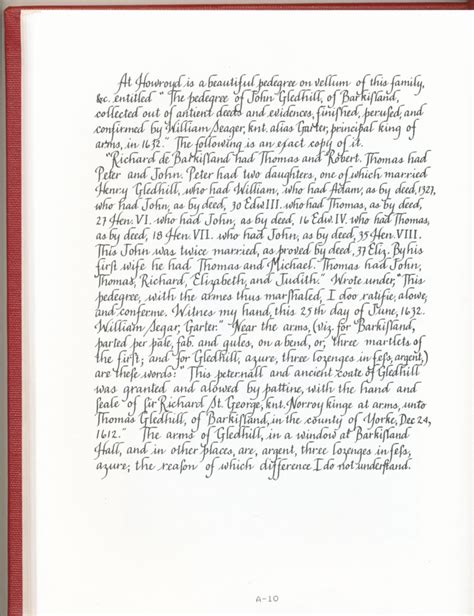 At Howroyd is a beautiful pedegree on vellum of this family,
&c. entitled " The pedegree of John Gledhill, of Barkiſland,
collected out of antient deeds and evidences, finiſhed, peruſed, and
confirmed by William Seager, knt. alias Garter, principal king of
arms, in 1632." The following is an exact copy of it.
"Richard de Barkiſland had Thomas and Robert. Thomas had
Peter and John. Peter had two daughters, one of which married
Henry Gledhill, who had William, who had Adam, as by deed, 1327,
who had John, as by deed, 30 Edw. III. who had Thomas, as by deed,
27 Hen. VI. who had John, as by deed, 16 Edw. IV. who had Thomas,
as by deed, 18 Hen. VII. who had John, as by deed, 35 Hen. VIII.
This John was twice married, as proved by deed, 37 Eliz. By his
firſt wife he had Thomas and Michael. Thomas had John,
Thomas, Richard, Elizabeth, and Judith." Wrote under, "This
pedegree, with the armes thus marſhaled, I doo ratifie, alowe,
and conferme. Witnes my hand, this 25th of June, 1632.
William Segar, Garter." Near the arms, (viz. for Barkiſland,
parted per pale, ſab. and gules, on a bend, or, three martlets of
the firſt; and for Gledhill, azure, three lozenges in feſs, argent,)
are theſe words: "This peternall and ancient coate of Gledhill
was granted and alowed by pattine, with the hand and
ſeale of ſir Richard St. George, knt. Norroy kinge at arms, unto
Thomas Gledhill, of Barkiſland, in the county of Yorke, Dec 24,
1612." The arms of Gledhill, in a window at Barkiſland
Hall, and in other places, are, argent, three lozenges in feſs,
azure; the reaſon of which difference I do not underſtand.
A-10